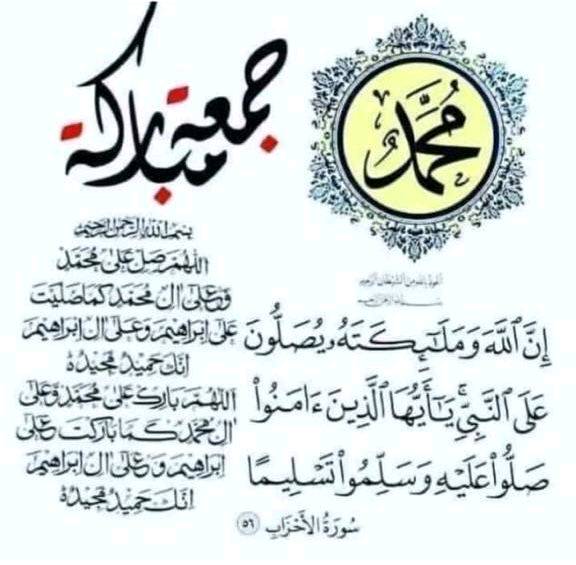 جمعة مباركة
محمد
بسم الله الرحمن الرحيم
اللهم صل على محمد
وعلى ال محمد كما صليت
على ابراهيم وعلى ال ابراهيم
انك حميد مجيد
اللهم بارك على محمد وعلى
ال محمد كما باركت على
ابراهيم وعلى ال ابراهيم
انك حميد مجيد
أعوذ بالله من الشيطان الرجيم
بسم الله الرحمن الرحيم
إِنَّ ٱللَّهَ وَمَلَٰٓئِكَتَهُۥ يُصَلُّونَ
عَلَى ٱلنَّبِيِّۚ يَٰٓأَيُّهَا ٱلَّذِينَ ءَامَنُوا۟
صَلُّوا۟ عَلَيْهِ وَسَلِّمُوا۟ تَسْلِيمًا
سُورَةُ الأَحْزَابِ ٥٦